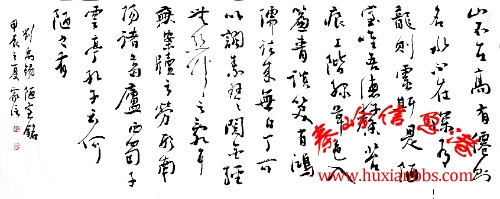 山不在高有僊則
名水不在深有
龍則靈斯是陋
室唯吾德馨苔
痕上階綠草色入
簾青談笑有鴻
儒往來無白丁可
以調素琴閱金經
無絲竹之亂耳
無案牘之勞形南
陽諸葛廬西蜀子
雲亭孔子云何
陋之有
劉禹錫陋室銘
甲辰之夏
www.huxianbbs.com